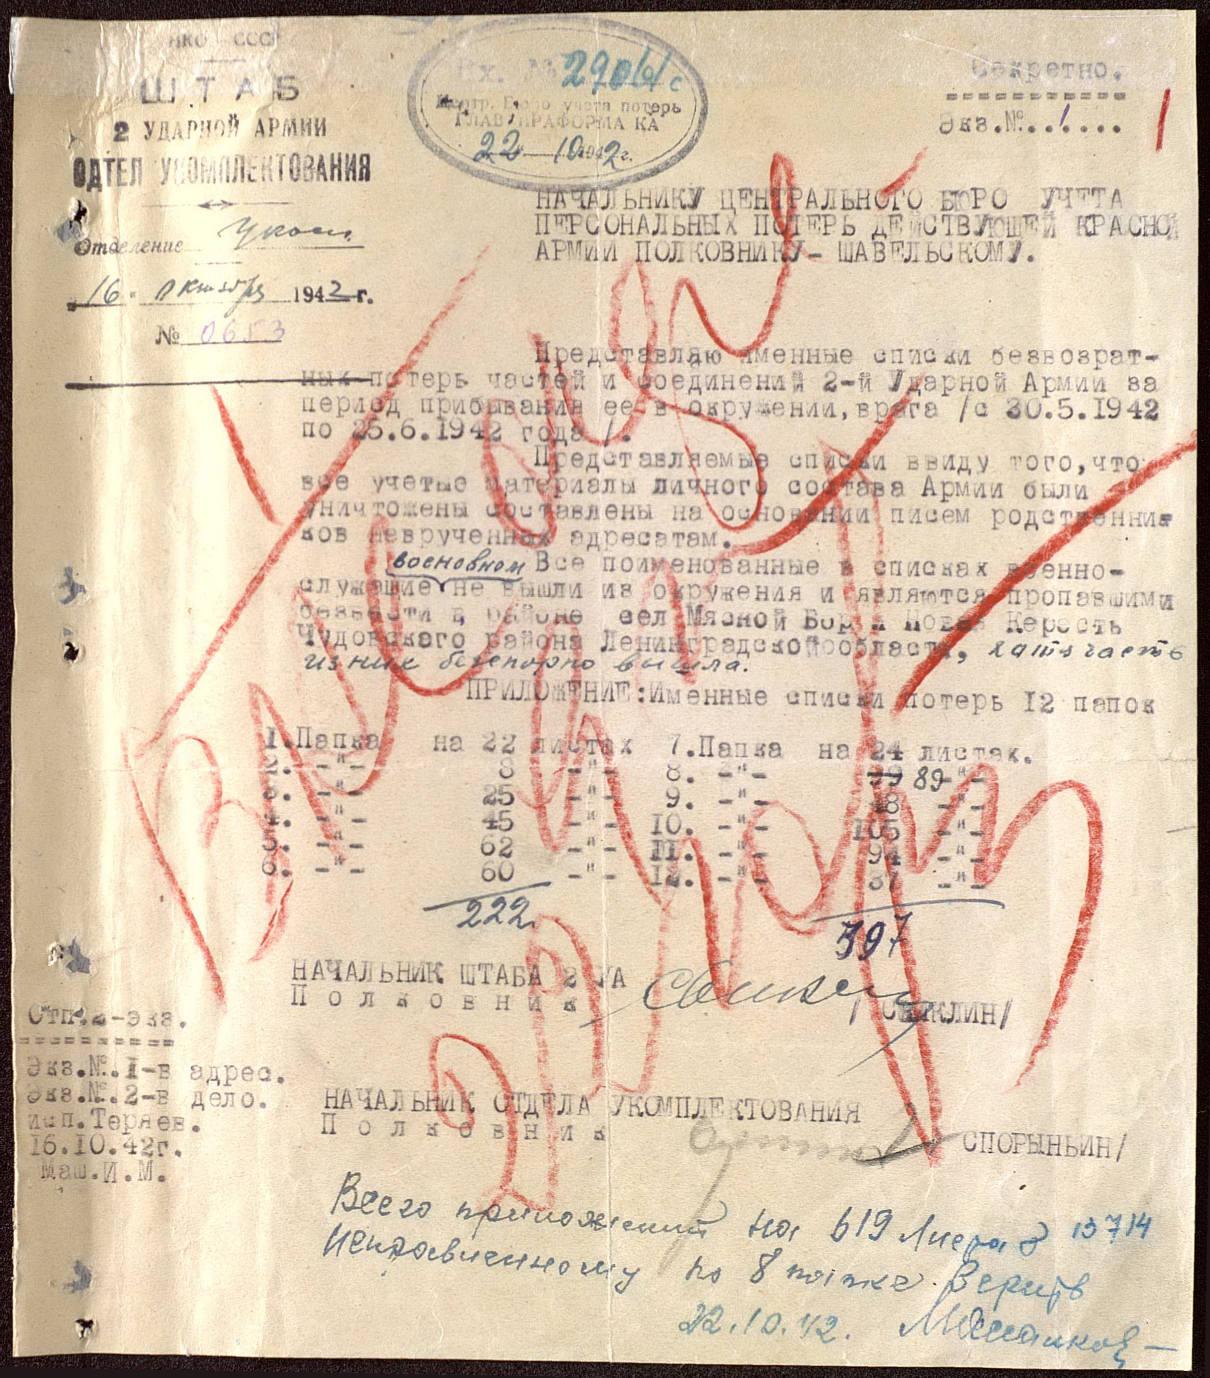 НКО — СССР
ШТАБ
2 УДАРНОЙ АРМИИ
ОДТЕЛ УКОМПЛЕКТОВАНИЯ
Отделение Уком.
"16" октября 1942 г.
№ 0653
Вх. № 29044с
Центр. Бюро учета потерь
ГЛАВУПРАФОРМА КА
22 10 1942 г.
Секретно.
Экз.№..1....
1
НАЧАЛЬНИКУ ЦЕНТРАЛЬНОГО БЮРО УЧЕТА
ПЕРСОНАЛЬНЫХ ПОТЕРЬ ДЕЙСТВУЮЩЕЙ КРАСНОЙ
АРМИИ ПОЛКОВНИКУ- ШАВЕЛЬСКОМУ.
Представляю именные списки безвозрат-
ных потерь частей и соединений 2-й Ударной Армии за
период прибывания ее в окружении, врага /с 30.5.1942
по 25.6.1942 года /.
Представляемые списки ввиду того,что
все учетые материалы личного состава Армии были
уничтожены составлены на основании писем родственни-
ков неврученных адресатам.
восновном Все поименованные в списках военно-
служащие не вышли из окружения и являются пропавшими
безвести в районе сел Мясной Бор и Новая Кересть
Чудовского района Ленинградскойобласти, хотя часть
из них бесспорно вышла.
ПРИЛОЖЕНИЕ:Именные списки потерь 12 папок
1.Папка на 22 листах 7.Папка на 24 листах.
2. -"- 8 -"- 8. -"- 79 89 -"-
3. -"- 25 -"- 9. -"- 48 -"-
4. -"- 45 -"- 10. -"- 105 -"-
5. -"- 62 -"- 11. -"- 94 -"-
6. -"- 60 -"- 12. -"- 37 -"-
222 397
НАЧАЛЬНИК ШТАБА 2 УА
Полковник /СВИКЛИН/
НАЧАЛЬНИК ОТДЕЛА УКОМПЛЕКТОВАНИЯ
Полковник СПОРЫНЬИН/
Отп.2-экз.
Экз.№.1-в адрес.
Экз.№.2-в дело.
исп.Теряев.
16.10.42г.
маш.И.М.
Всего приложений на 619 листа 13714
Исправленному по 8 папке верить
22.10.42.